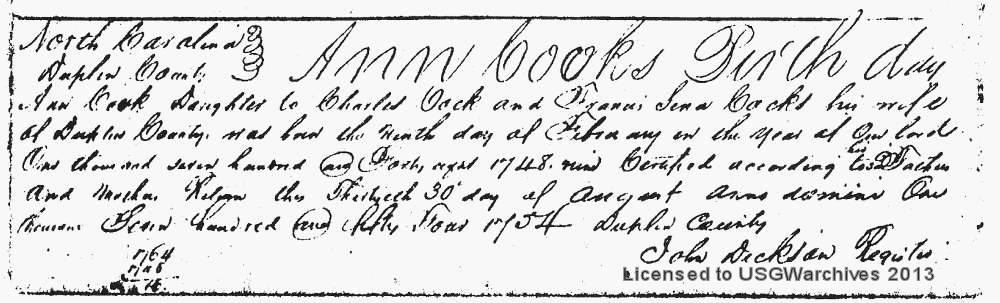 North Carolina
Duplin County
Ann Cooks Birth day
Ann Cook Daughter to Charles Cock and Francis Cocks his wife
of Duplin County. was born the Ninth day of February in the year of Our lord
One thousand seven hundred and Forty eight 1748. Certified according to Fathers
and Mothers this Thirtieth 30 day of August anno domini One
thousand Seven hundred and fifty Four 1754 Duplin County
John Dickson Register
1764
16
Licensed to USGWarchives 2013